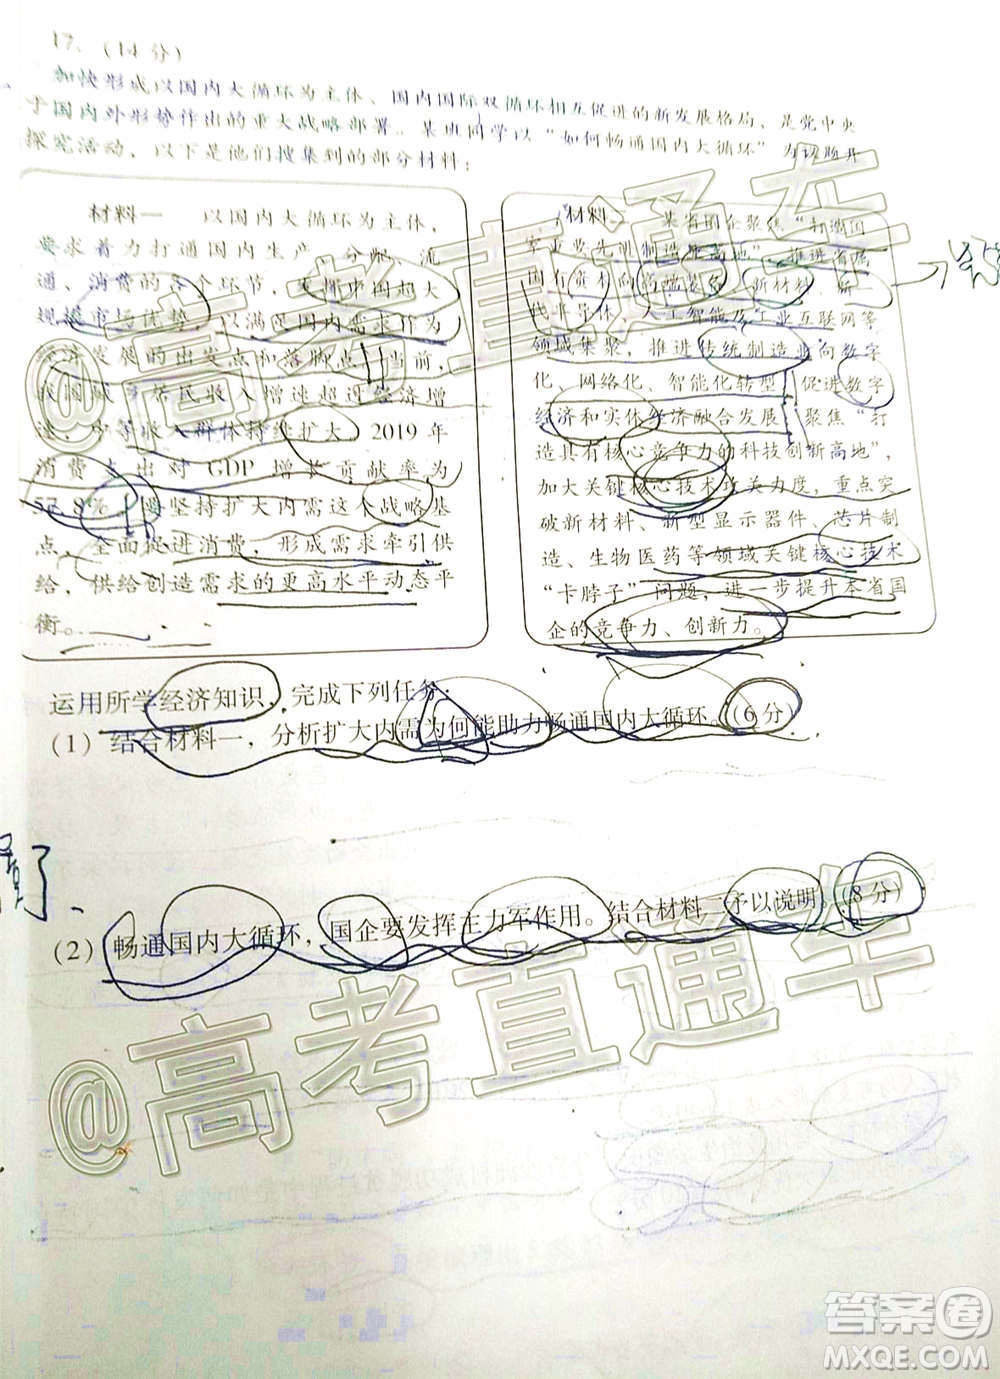 17.（14分）
加快形成以国内大循环为主体、国内国际双循环相互促进的新发展格局，是党中央
于国内外形势作出的重大战略部署。某班同学以“如何畅通国内大循环”为议题开
探究活动，以下是他们搜集到的部分材料：
材料一 以国内大循环为主体，
要求着力打通国内生产、分配、流
通、消费的各个环节，发挥中国超大
规模市场优势，以满足国内需求作为
经济发展的出发点和落脚点。当前，
我国城乡居民收入增速超过经济增
速，中等收入群体持续扩大，2019年
消费支出对GDP增长贡献率为
57.8%，要坚持扩大内需这个战略基
点，全面促进消费，形成需求牵引供
给，供给创造需求的更高水平动态平
衡。
材料二 某省国企聚焦“打造国
家重要先进制造业高地”，推进省属
国有资本向高端装备、新材料、新一
代半导体、人工智能及工业互联网等
领域集聚，推进传统制造业向数字
化、网络化、智能化转型，促进数字
经济和实体经济融合发展；聚焦“打
造具有核心竞争力的科技创新高地”，
加大关键核心技术攻关力度，重点突
破新材料、新型显示器件、芯片制
造、生物医药等领域关键核心技术
“卡脖子”问题，进一步提升本省国
企的竞争力、创新力。
运用所学经济知识，完成下列任务：
（1）结合材料一，分析扩大内需为何能助力畅通国内大循环。（6分）
（2）畅通国内大循环，国企要发挥主力军作用。结合材料二予以说明。（8分）
@高考直通车
@高考直通车
答案圈
MXQE.COM